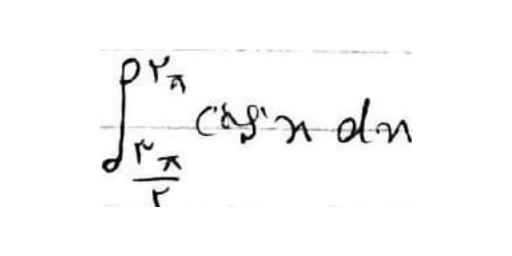 ∫_{۳π/۲}^{۲π} cos x dx